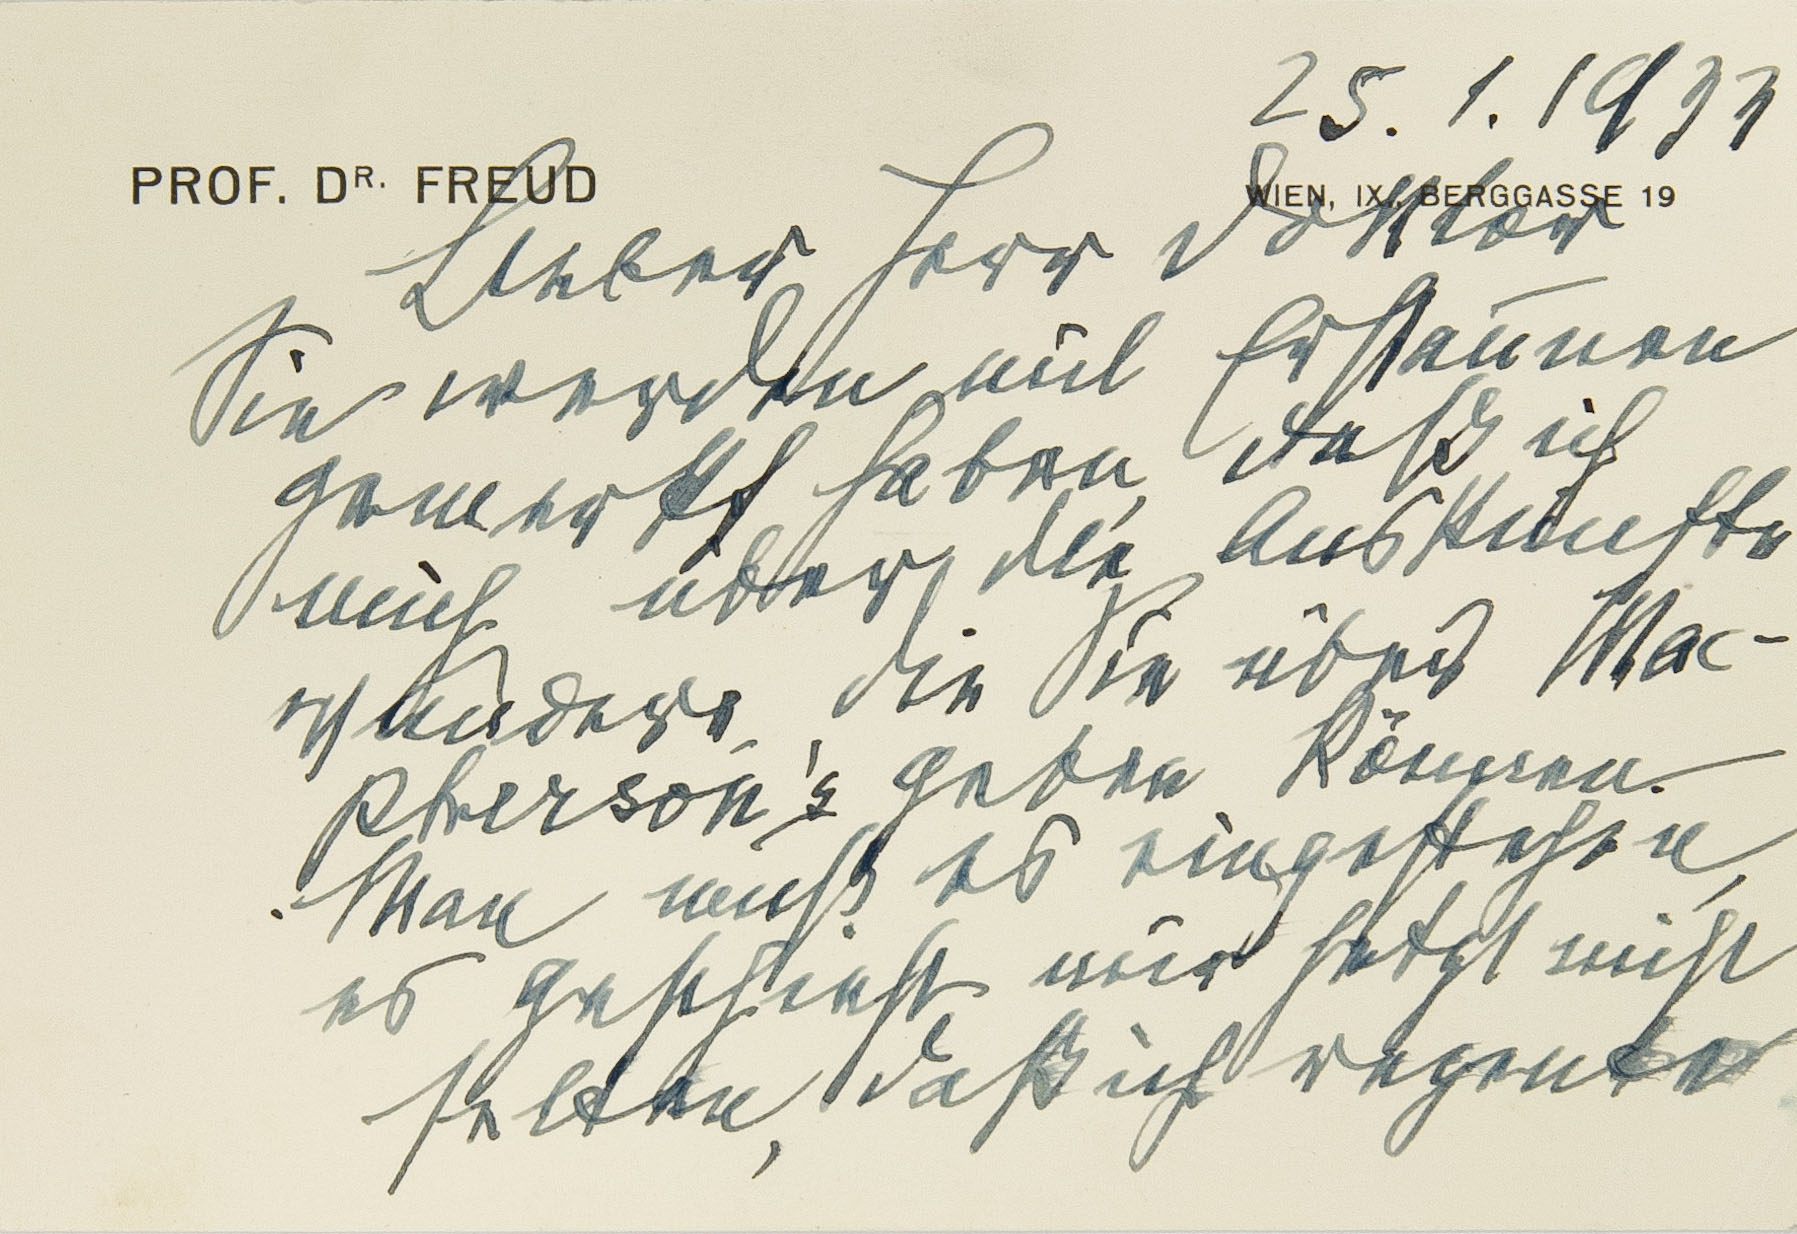 25.1.1933
PROF. DR. FREUD WIEN, IX., BERGGASSE 19
Lieber Herr Doktor
Sie werden mit Erstaunen
gemerkt haben, daß ich
mich über die Auskünfte
wundere, die Sie über Mac-
pherson's geben können.
Man muß es eingestehen,
es geschieht mir jetzt nicht
selten, daß ich